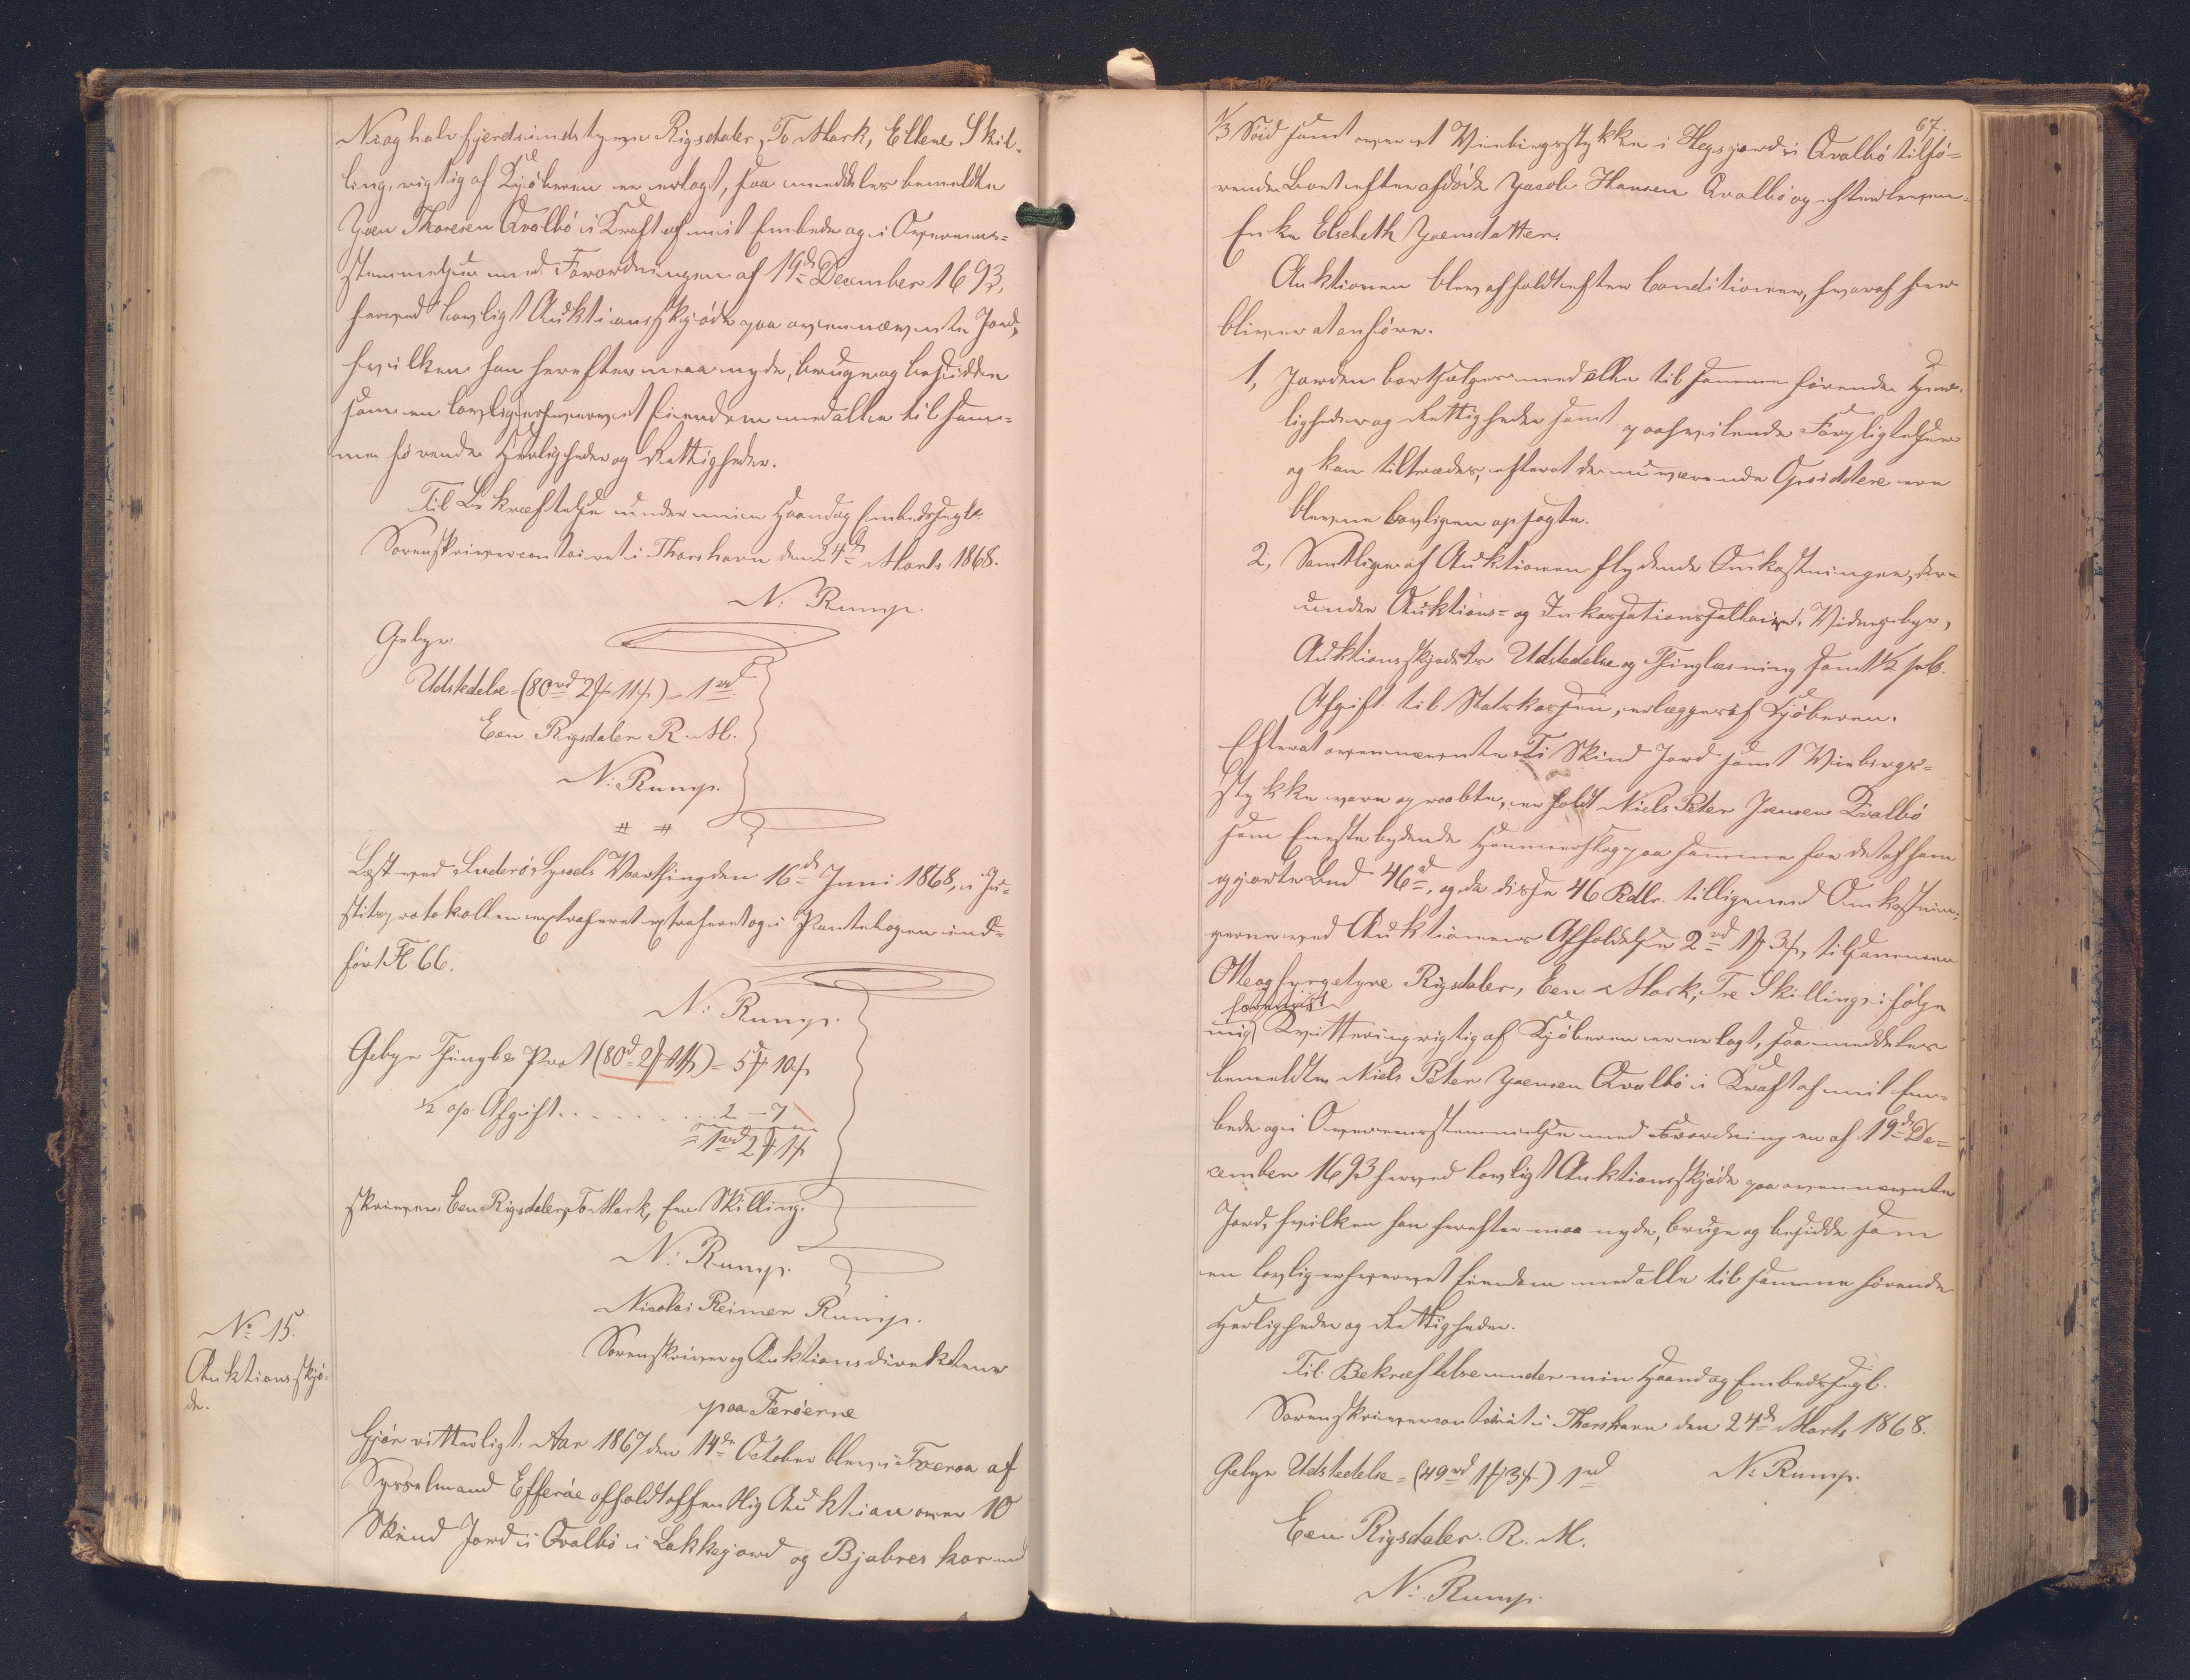 Niog halvfjerdsindstyve Rigsdaler, To Mark, Elleve Skil-
ling, rigtig af Kjøberen er erlagt, saa meddeles bemeldte
Joen Thoresen Qvalbø i Kraft af mit Embede og i Overens-
stemmelse med Forordningen af 19de December 1693,
herved lovligt Auktionsskjøde paa ovennævnte Jord,
hvilken han herefter maa nyde, bruge og besidde
som en lovlig erhvervet Eiendom med alle til sam-
me hørende Herligheder og Rettigheder.
Til Bekræftelse under min Haand og Embedssegl.
Sorenskrivercontoiret i Thorshavn den 24de Marts 1868.
N. Rump.
Gebyr
Udstedelse = (80rd 2# 11ß) - 1rd
Een Rigsdaler R. M.
N. Rump.
# #
Læst ved Suderø Syssels Vaarthing den 16de Juni 1868, i Ju-
stitsprotokollen extraheret extraheret og i Pantebogen ind-
ført Fl 66.
N. Rump.
Gebyr Thingl & Prot (80d 2# 11ß) = 5# 10ß
½ o/o Afgift . . . . . . . 2 - 7
= 1rd 2# 1ß
skriver Een Rigsdaler, To Mark, Een Skilling.
N. Rump.
No 15.
Auktionsskjø-
de.
Nicolai Reimer Rump.
Sorenskriver og Auktionsdirekteur
paa Færøerne
Gjør vitterligt: Aar 1867 den 14de October blev i Tveraa af
Sysselmand Effersøe afholdt offentlig Auktion over 10
Skind Jord i Qvalbø i Lakkegjord og Bjabres kor med
67.
1/3 Sæd samt over et Vinbirgsstykke i Hegsgaard i Qvalbø tilhø-
rende Boet efter afdøde Jacob Hansen Qvalbø og efterleven-
Enke Elsebeth Joensdatter.
Auktionen blev afholdt efter Conditioner, hvoraf her
bliver at anføre.
1, Jorden bortsælges med alle til samme hørende Her-
ligheder og Rettigheder samt paahvilende Forpligtelser
og kan tiltrædes, efterat de nuværende Opsiddere ere
blevne lovligen opsagte.
2, Samtlige af Auktionen flydende Omkostninger, der-
under Auktions- og Inkassationssalair, Vidnegebyr,
Auktionsskjødets Udstedelse og Thinglæsning samt ½ pCt.
Afgift til Statskassen, erlægges af Kjøberen.
Efterat ovennævnte Ti Skind Jord samt Vinbirgs-
stykke vare opraabte, erholdt Niels Peter Joensen Qvalbø
som Eneste bydende Hammerslag paa samme for det af ham
gjorte Bud 46d, og da disse 46 Rdlr. tilligemed Omkostnin-
gerne ved Auktionens Afholdelse 2rd 1# 3ß, tilsammen
Otteogfyrgetyve Rigsdaler, Een Mark, Tre Skilling ifølge
foreviist
mig Qvittering rigtig af Kjøberen er erlagt, saa meddeles
bemeldte Niels Peter Joensen Qvalbø i Kraft af mit Em-
bede og i Overensstemmelse med Forordningen af 19de De-
cember 1693 herved lovligt Auktionsskjøde paa ovennævnte
Jord, hvilken han herefter maa nyde, bruge og besidde som
en lovlig erhvervet Eiendom med alle til samme hørende
Herligheder og Rettigheder.
Til Bekræftelse under min Haand og Embedssegl.
Sorenskrivercontoiret i Thorshavn den 24de Marts 1868.
N. Rump.
Gebyr Udstedelse = (49rd 1# 3ß) 1rd
Een Rigsdaler. R. M.
N. Rump.